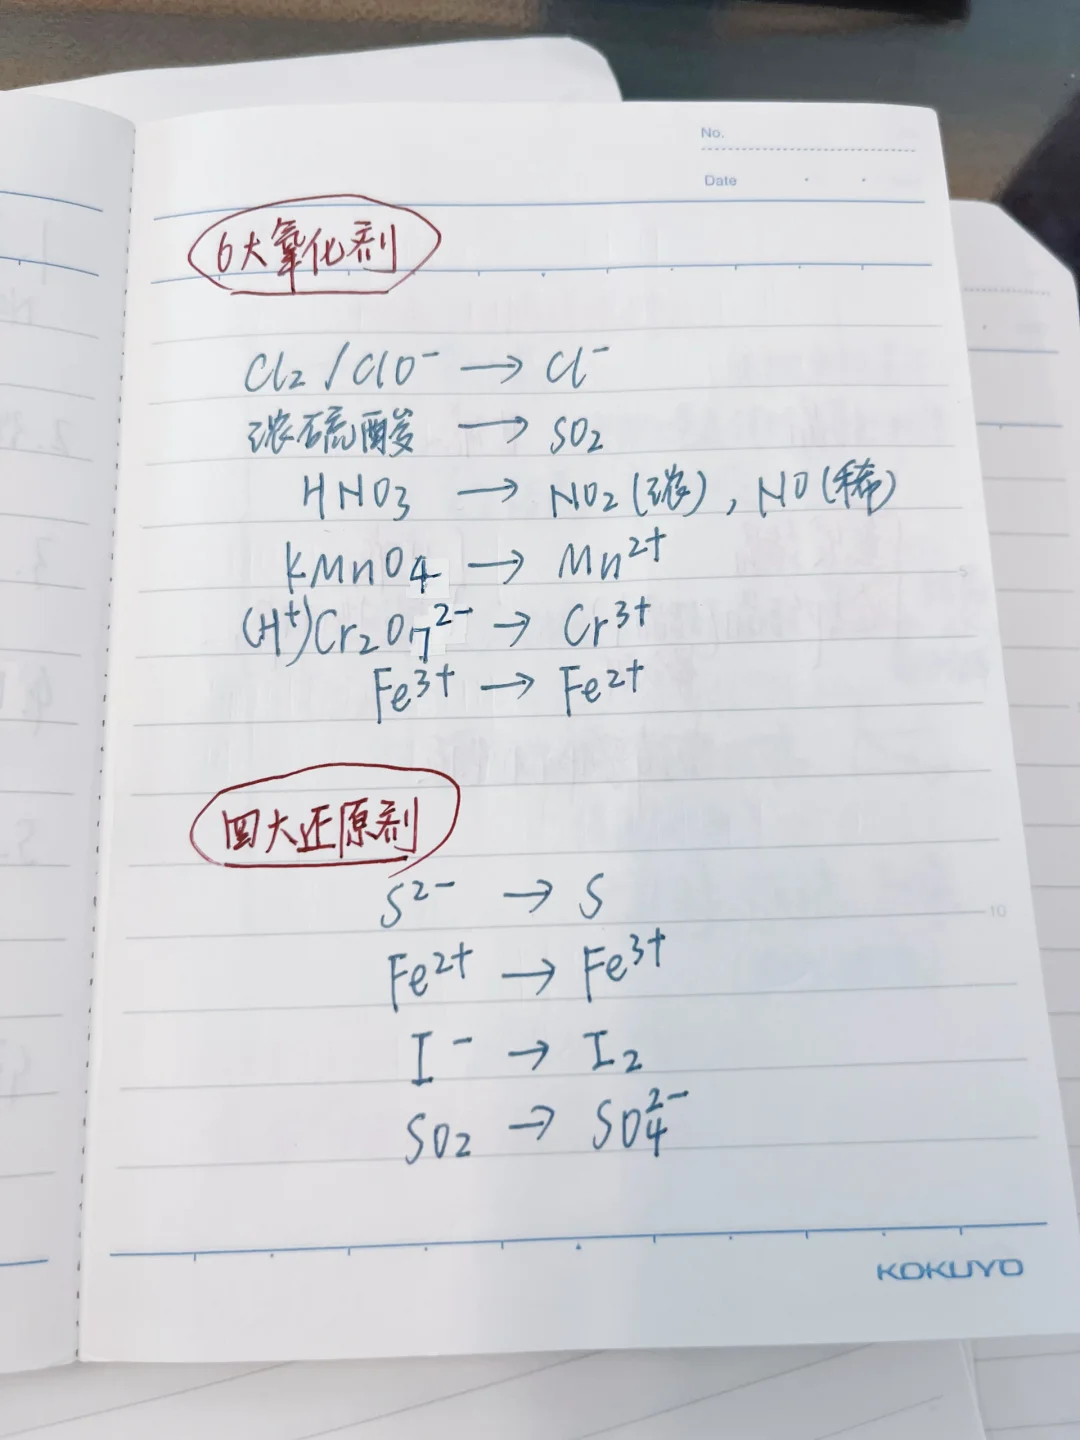 No.
Date
6大氧化剂
Cl₂/ClO⁻ → Cl⁻
浓硫酸 → SO₂
HNO₃ → NO₂(浓), NO(稀)
KMnO₄ → Mn²⁺
(H⁺)Cr₂O₇²⁻ → Cr³⁺
Fe³⁺ → Fe²⁺
四大还原剂
S²⁻ → S
Fe²⁺ → Fe³⁺
I⁻ → I₂
SO₂ → SO₄²⁻
5
10
KOKUYO